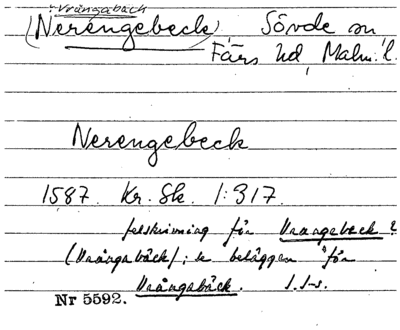 : Vrångabäck
(Nerengebeck) Sövde sn
Färs hd, Malm. l.
Nerengebeck
1587. Kr. Sk. 1:317.
felskrivning för Vrangebeck?
(Vrångabäck); se beläggen för
Vrångabäck. I. I-s.
Nr 5592.